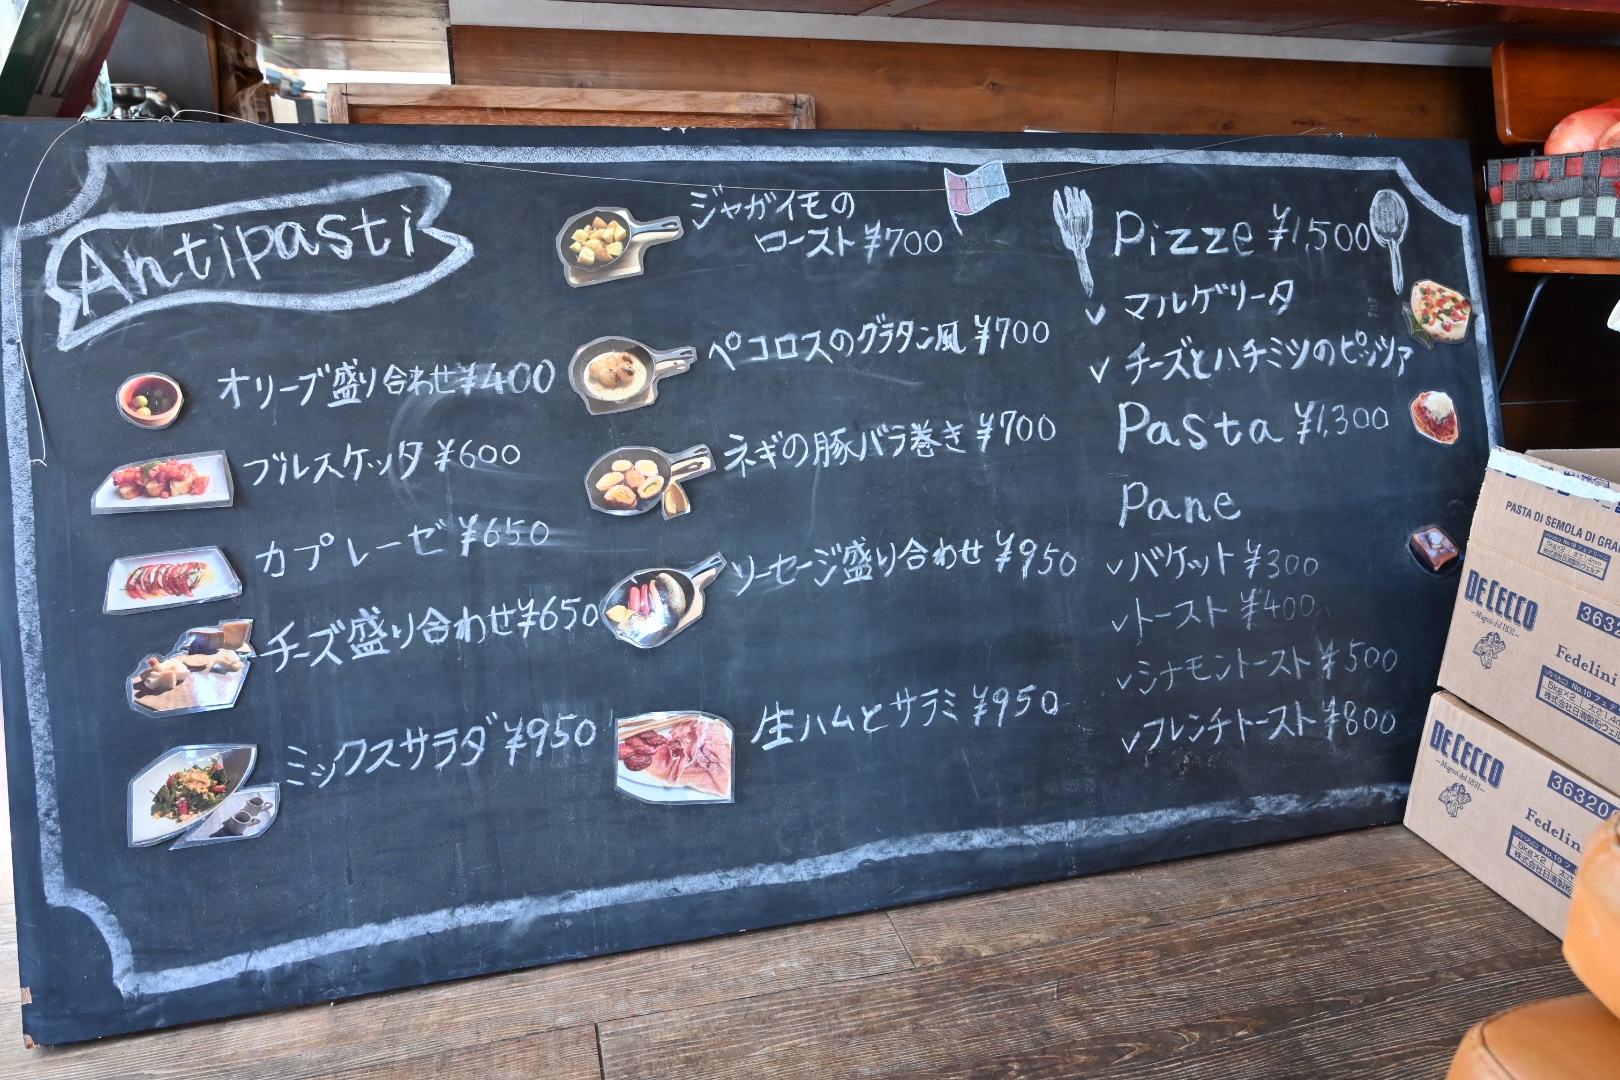 Antipasti
オリーブ盛り合わせ ¥400
ブルスケッタ ¥600
カプレーゼ ¥650
チーズ盛り合わせ ¥650
ミックスサラダ ¥950
ジャガイモの
ロースト ¥700
ペコロスのグラタン風 ¥700
ネギの豚バラ巻き ¥700
ソーセージ盛り合わせ ¥950
生ハムとサラミ ¥950
Pizze ¥1,500
✓ マルゲリータ
✓ チーズとハチミツのピッツァ
Pasta ¥1,300
Pane
✓ バケット ¥300
✓ トースト ¥400
✓ シナモントースト ¥500
✓ フレンチトースト ¥800
PASTA DI SEMOLA DI GRA
DE CECCO
3632
Fedelini
5kg×2
DE CECCO
363201
Fedelin
5kg×2 太さ
株式会社日清製粉